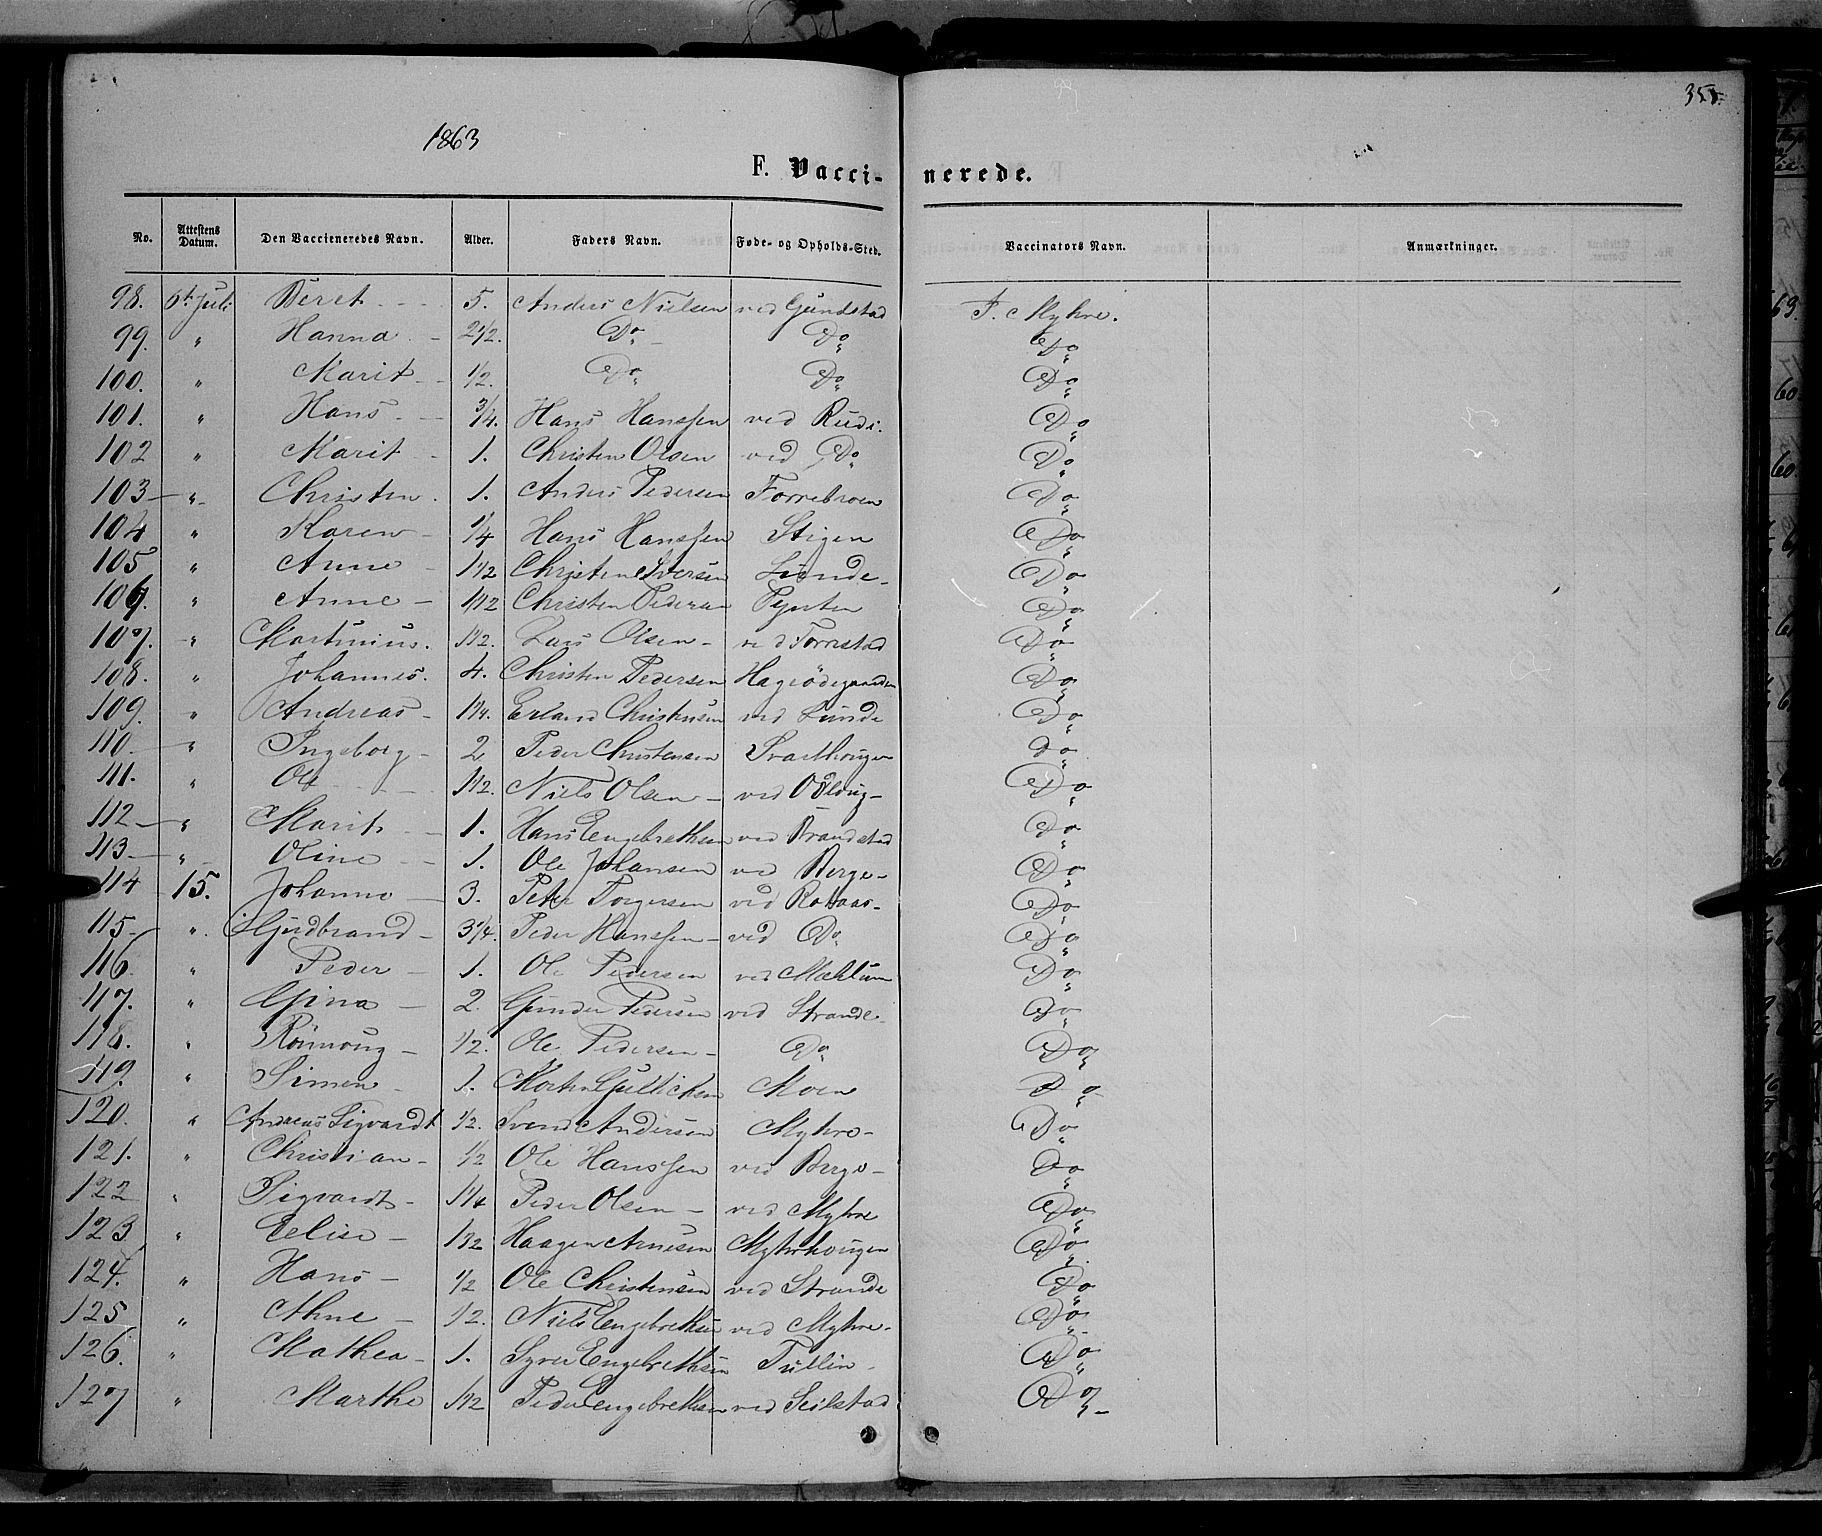 355.
1863
F. Vaccinerede.
No. Attestens Datum. Den Vaccieneredes Navn. Alder. Faders Navn. Føde- og Opholds-Sted. Vaccinators Navn. Anmærkninger.
98. 6te Juli Beret 5. Anders Nielsen ved Gundstad F. Myhre.
99. " Hanna 2 1/2. Do Do Do
100. " Marit 1/2. Do Do Do
101. " Hans 3/4. Hans Hanssen ved Rudi. Do
102 " Marit 1. Christen Olsen ved Do Do
103 " Christen. 1. Anders Pedersen Forrebroen Do
104 " Karen 1/4 Hans Hanssen Stigen Do
105 " Anne 1 1/2 Christen Iversen Lunde Do
106. " Anne 1 1/2 Christen Pedersen Pynten Do
107. " Martinius. 1 1/2. Lars Olsen ved Forrestad Do
108. " Johannes. 4. Christen Pedersen Hageödegaarden Do
109. " Andreas 1 1/4. Erland Christensen ved Lunde Do
110. " Ingeborg 2 Peder Christensen Svarthougen Do
111. " Ole 1 1/2. Niels Olsen ved Do
112 " Marit 1. Hans Engebrethsen ved Brandstad Do
113 " Oline 1. Ole Johansen ved Berge Do
114 15. Johanne 3. Peter Torgersen ved Rolstad Do
115 " Gudbrand 3/4. Peder Hanssen ved Do Do
116. " Peder 1. Ole Pedersen ved Mæhlum Do
117. " Gina 2. Gunder Pedersen ved Strande Do
118. " Rönnoug 1/2. Ole Pedersen Do Do
119. " Simen 1. Morten Gullicksen Moen Do
120. " Andreas Sigvardt 1/2. Svend Andersen Myhre Do
121. " Christian 1/2 Ole Hanssen ved Berge Do
122 " Sigvardt 1 1/4 Peder Olsen ved Myhre Do
123 " Elise 1 1/2 Haagen Arnesen Myhrhougen Do
124. " Hans 1/2 Ole Christensen ved Strande Do
125 " Ahne 1/2. Niels Engebrethsen ved Myhre Do
126. " Mathea 1. Syver Engebrethsen Tullin Do
127 " Marthe 1 1/2 Peder Engebrethsen ved Seilstad Do